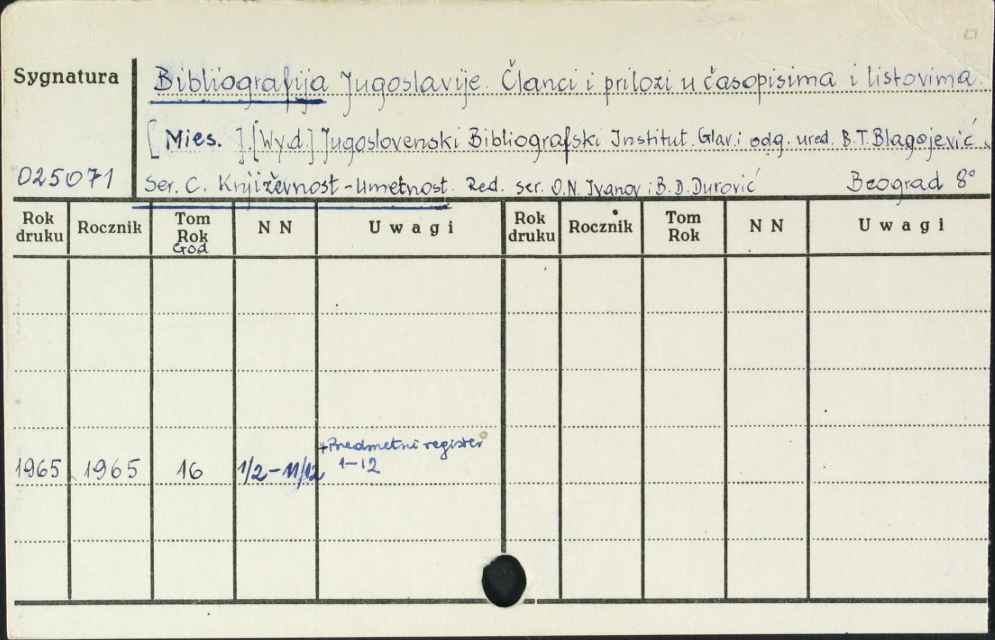 Sygnatura
Bibliografija Jugoslavije. Članci i prilozi u časopisima i listovima.
[Mies.].[Wyd.] Jugoslovenski Bibliografski Institut. Glav. i odg. ured. B.T. Blagojević.
025071
Ser. C. Književnost-umetnost. Red. ser. O.N. Ivanov i B.D. Đurović Beograd 8°
Rok druku Rocznik Tom Rok God NN Uwagi Rok druku Rocznik Tom Rok NN Uwagi
+Predmetni register
1965 1965 16 1/2-11/12 1-12